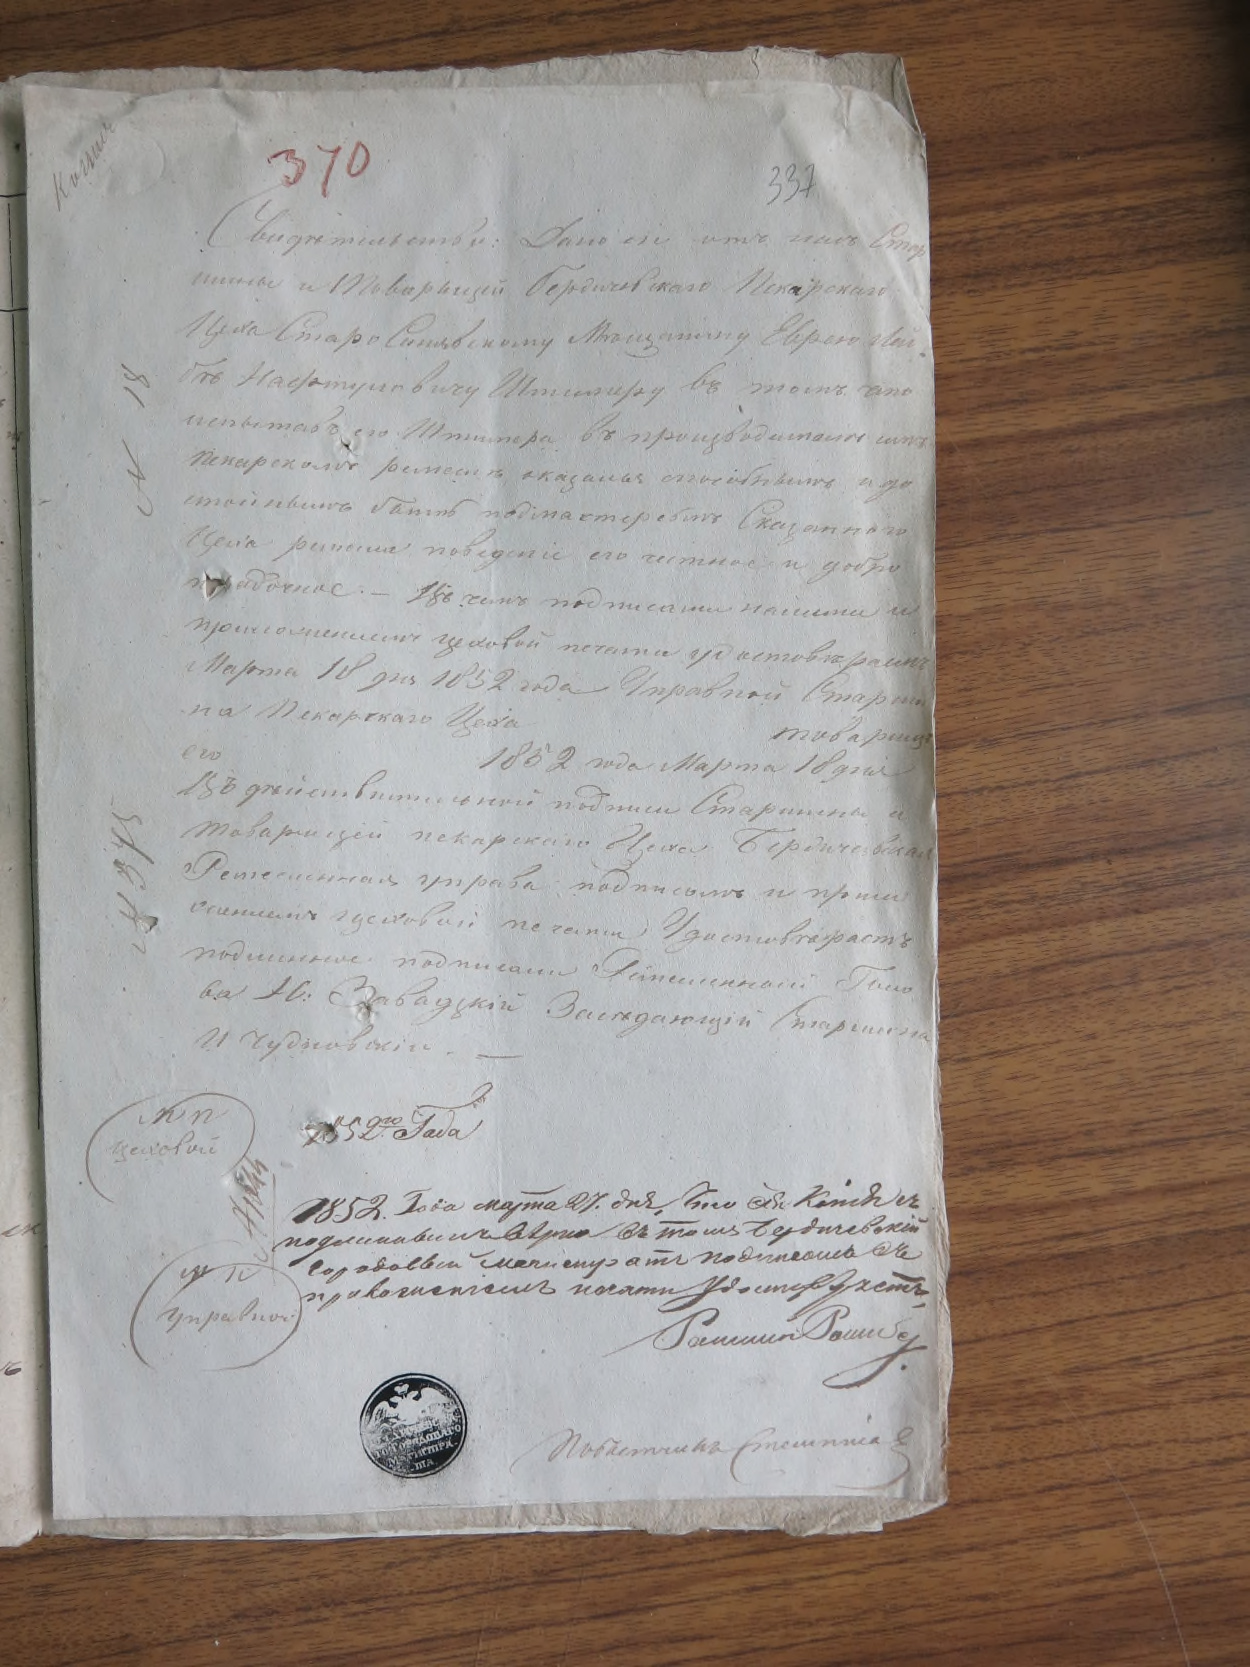 Копия
370
337
Свидѣтельство: Дано сіе отъ насъ Стар
шины и Товарищей Бердичевскаго Пекарскаго
Цеха Старо Синявскому Мѣщанину Еврею Лей
бѣ Нафтуловичу Штимеру въ томъ что
испытавъ его Штимера въ производимомъ имъ
пекарскомъ ремеслѣ оказался способнымъ и до
стойнымъ быть подмастерьемъ Сказанного
Цеха поведеніе его честное и добро
порядочное. — Въ чемъ подписами нашими и
приложеніемъ цеховой печати удостовѣряемъ
Марта 18 дня 1852 года Управной Старши
на Пекарскаго Цеха
товарищ
его 1852 года Марта 18 дня
Въ дѣйствительной подписи Старшины и
товарищей пекарскаго Цеха Бердичевская
Ремесленная управа подписомъ и прило
женіемъ цеховой печати Удостовѣряетъ
подлинное подписали Ремесленной Голо
ва Завадзкій Заседающій Старшина
И Чудновскій. —
№ 18
М П
цеховой
1852го Года
М П
Управной
1852. Года марта 27. дня, что Сія Копія съ
подлиннымъ вѣрна въ томъ Бердичевскій
Городовый магистратъ подписомъ съ
приложеніемъ печати Удостовѣряетъ,
ГОРОДОВАГО
МАГИСТРА-
ТА